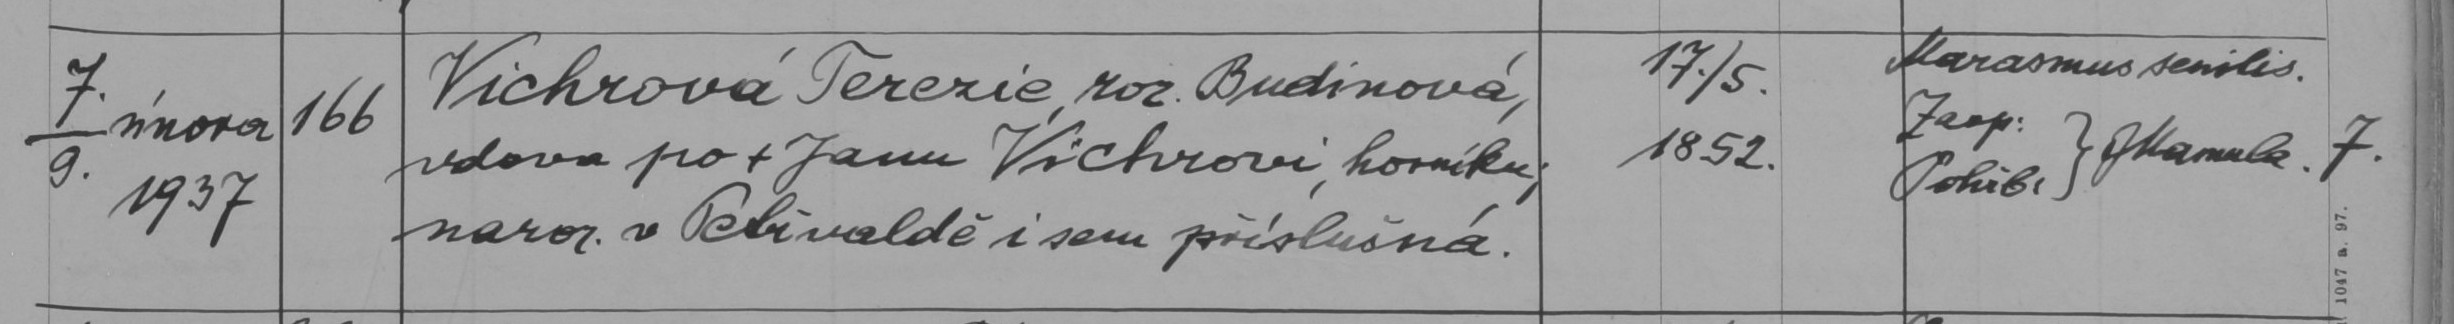 7./9. února 1937
166
Vichrová Terezie, roz. Budinová,
vdova po + Janu Vichrovi, horníku;
naroz. v Petřvaldě i sem příslušná.
17./5.
1852.
Marasmus senilis.
Zaop:
Pohřb:
} JMamula. 7.
1047 a. 97.